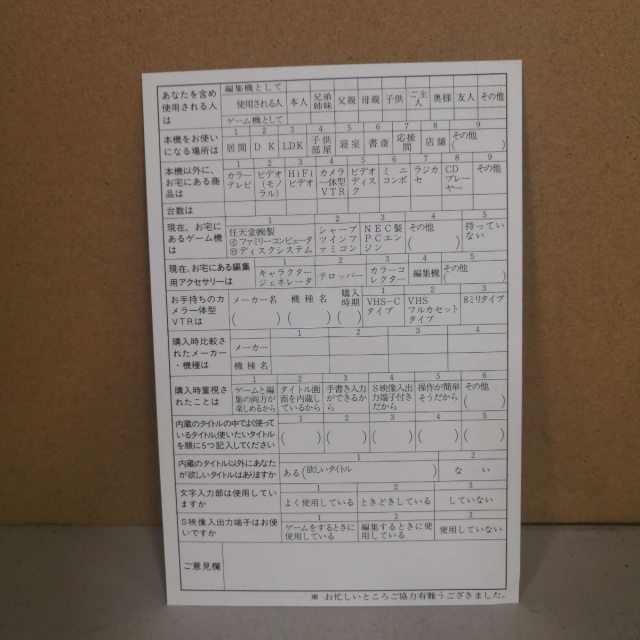 あなたを含め
使用される人
は
編集機として
使用される人 本人 兄弟姉妹 父親 母親 子供 ご主人 奥様 友人 その他
ゲーム機として
本機をお使い
になる場所は
1 2 3 4 5 6 7 8 9
居間 DK LDK 子供部屋 寝室 書斎 応接間 店舗 その他( )
本機以外に、
お宅にある商
品は
1 2 3 4 5 6 7 8 9
カラーテレビ ビデオ(モノラル) HiFiビデオ カメラ一体型VTR ビデオディスク ミニコンポ ラジカセ CDプレーヤー その他
台数は
現在、お宅に
あるゲーム機
は
1 2 3 4 5
任天堂㈱製 シャープ NEC製 その他 持ってい
ファミリーコンピュータ ツインフ PCエン ( ) ない
ディスクシステム ァミコン ジン
現在、お宅にある編集
用アクセサリーは
1 2 3 4 5
キャラクタージェネレータ テロッパー カラーコレクター 編集機 その他( )
お手持ちのカ
メラ一体型
VTRは
メーカー名 機種名 購入時期
( ) ( ) ( )
1 2 3
VHS-Cタイプ VHSフルカセットタイプ 8ミリタイプ
購入時比較さ
れたメーカー
・機種は
1 2 3 4
メーカー
機種名
購入時重視さ
れたことは
1 2 3 4 5 6
ゲームと編 タイトル画 手書き入力 S映像入出 操作が簡単 その他
集の両方が 面を内蔵し ができるか 力端子付き そうだから ( )
楽しめるから ているから ら だから
内蔵のタイトルの中でよく使って
いるタイトル、使いたいタイトル
を順に5つ記入してください
1 2 3 4 5
( ) ( ) ( ) ( ) ( )
内蔵のタイトル以外にあなた
が欲しいタイトルはありますか
1 2
ある(欲しいタイトル ) ない
文字入力部は使用してい
ますか
1 2 3
よく使用している ときどきしている していない
S映像入出力端子はお使
いですか
1 2 3
ゲームをするときに 編集するときに使 使用していない
使用している 用している
ご意見欄
※ お忙しいところご協力有難うございました。